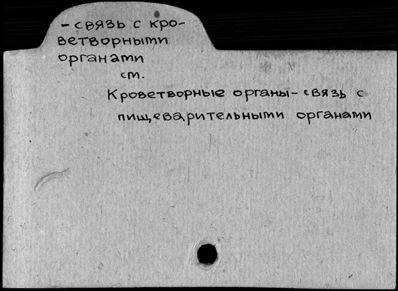 - связь с кро-
ветворными
органами
см.
Кроветворные органы - связь с
пищеварительными органами